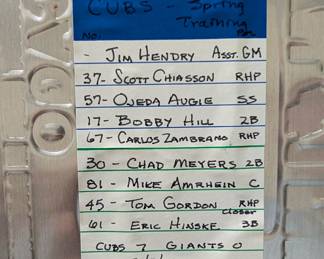 CUBS - Spring
Training
No. Pos.
- JIM HENDRY ASST. GM
37- SCOTT CHIASSON RHP
57- OJEDA AUGIE SS
17- BOBBY HILL 2B
67- CARLOS ZAMBRANO RHP
30- CHAD MEYERS 2B
81- MIKE AMRHEIN C
45- TOM GORDON RHP
Closer
61- ERIC HINSKE 3B
CUBS 7 GIANTS 0